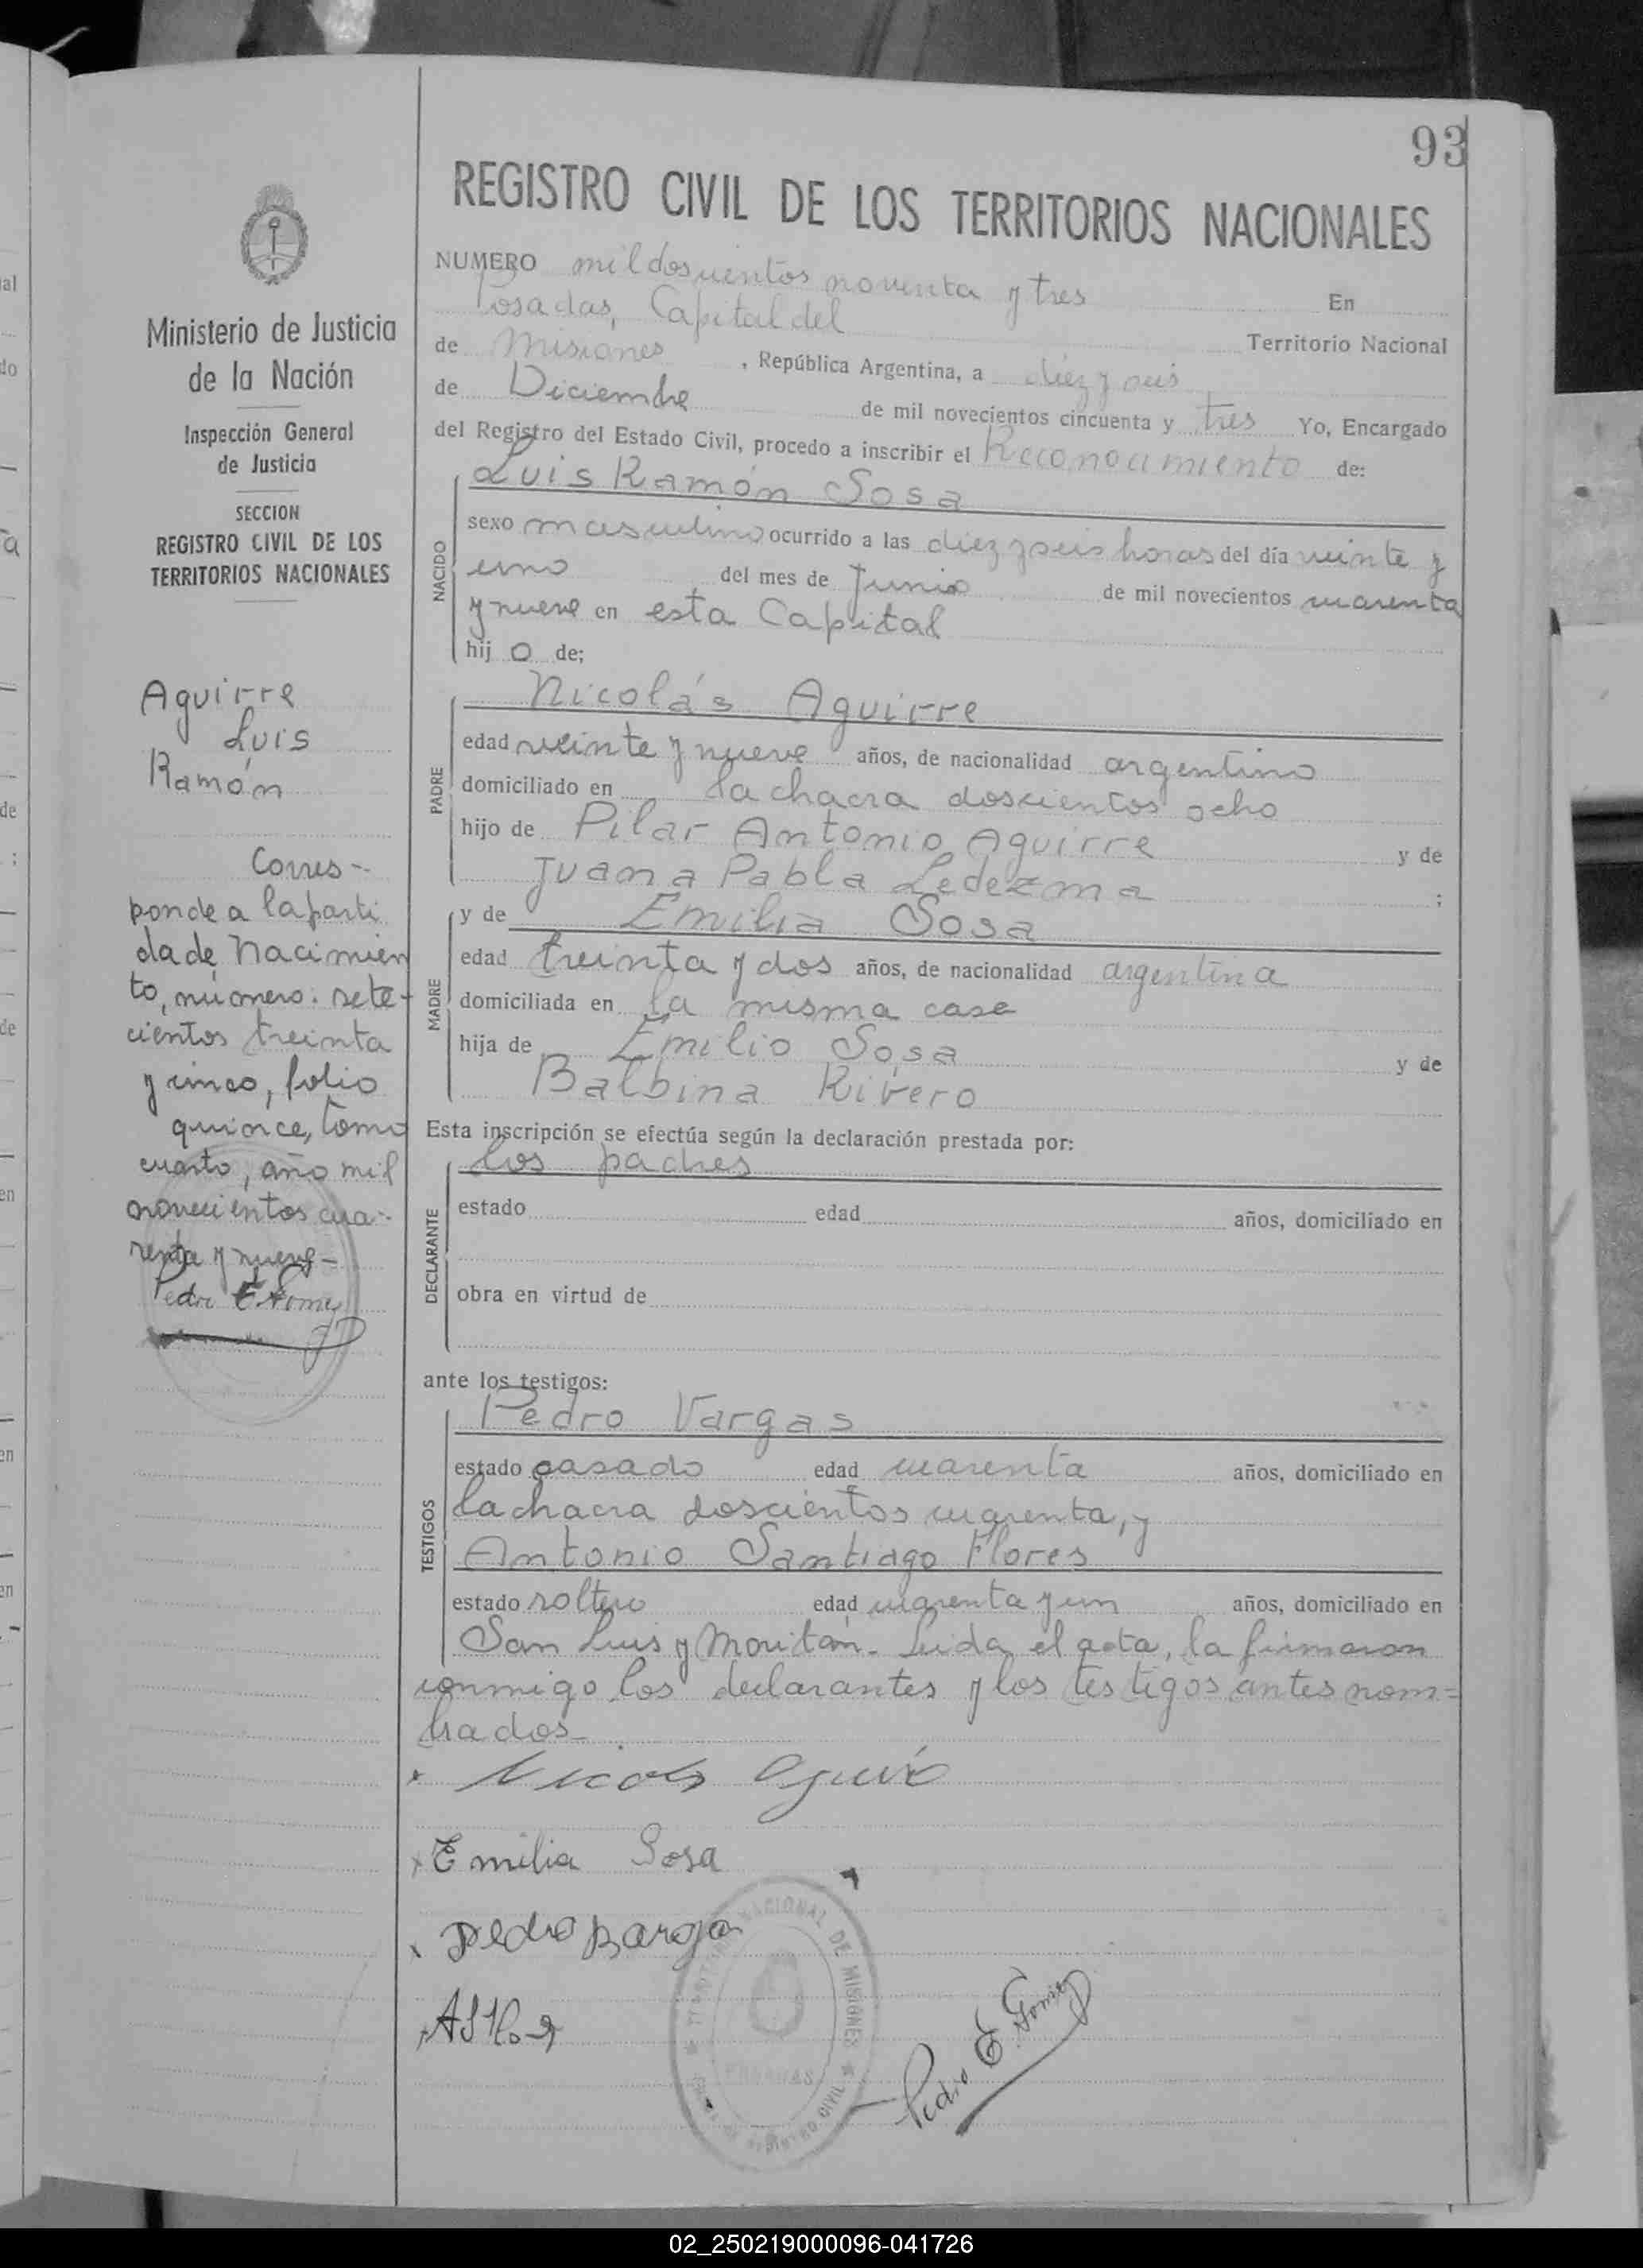 93
REGISTRO CIVIL DE LOS TERRITORIOS NACIONALES
NUMERO mil doscientos noventa y tres En
Posadas, Capital del Territorio Nacional
de Misiones, República Argentina, a diez y seis
de Diciembre de mil novecientos cincuenta y tres Yo, Encargado
del Registro del Estado Civil, procedo a inscribir el Reconocimiento de:
Luis Ramón Sosa
NACIDO
sexo masculino ocurrido a las diez y seis horas del día veinte y
uno del mes de Junio de mil novecientos cuarenta
y nueve en esta Capital
hij o de;
Nicolás Aguirre
PADRE
edad veinte y nueve años, de nacionalidad argentino
domiciliado en la chacra doscientos ocho
hijo de Pilar Antonio Aguirre y de
Juana Pabla Ledezma ;
y de Emilia Sosa
MADRE
edad treinta y dos años, de nacionalidad argentina
domiciliada en la misma casa
hija de Emilio Sosa y de
Balbina Rivero
Esta inscripción se efectúa según la declaración prestada por:
los padres
DECLARANTE
estado edad años, domiciliado en
obra en virtud de
ante los testigos:
Pedro Vargas
TESTIGOS
estado casado edad cuarenta años, domiciliado en
la chacra doscientos cuarenta, y
Antonio Santiago Flores
estado soltero edad cuarenta y un años, domiciliado en
San Luis y Moritán. Leida el acta, la firmaron
conmigo los declarantes y los testigos antes nom=
brados.-
Emilia Sosa
Pedro E. Gomez
NACIONAL DE MISIONES
REGISTRO CIVIL
POSADAS
Ministerio de Justicia
de la Nación
Inspección General
de Justicia
SECCION
REGISTRO CIVIL DE LOS
TERRITORIOS NACIONALES
Aguirre
Luis
Ramón
Corres-
ponde a la parti
da de Nacimien
to, número: sete-
cientos treinta
y cinco, folio
quince, tomo
cuarto, año mil
novecientos cua-
renta y nueve-
Pedro E. Gomez
02_250219000096-041726